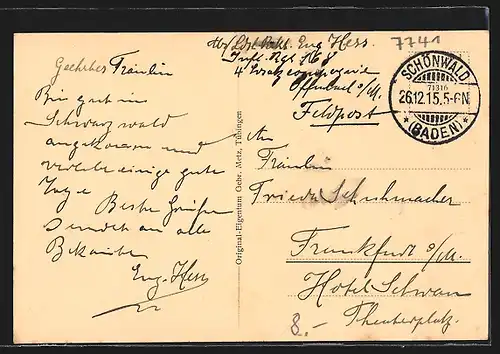 Geehrtes Fräulein
Bin gut in
Schwarzwald
angekommen und
verlebe einige gute
Tage
Beste Grüße
Sendet an alle
Bekannte
Eug. Hess
Eug. Hess.
Inft. Rgt No 8
4
Offenbach o/M.
Feldpost
7741
SCHÖNWALD
26.12.15.5-6N.
* (BADEN) *
Original-Eigentum Gebr. Metz, Tübingen
An
Fräulein
Frieda Schuhmacher
Frankfurt o/M.
Hotel Schwan
Theaterplatz.
8.-